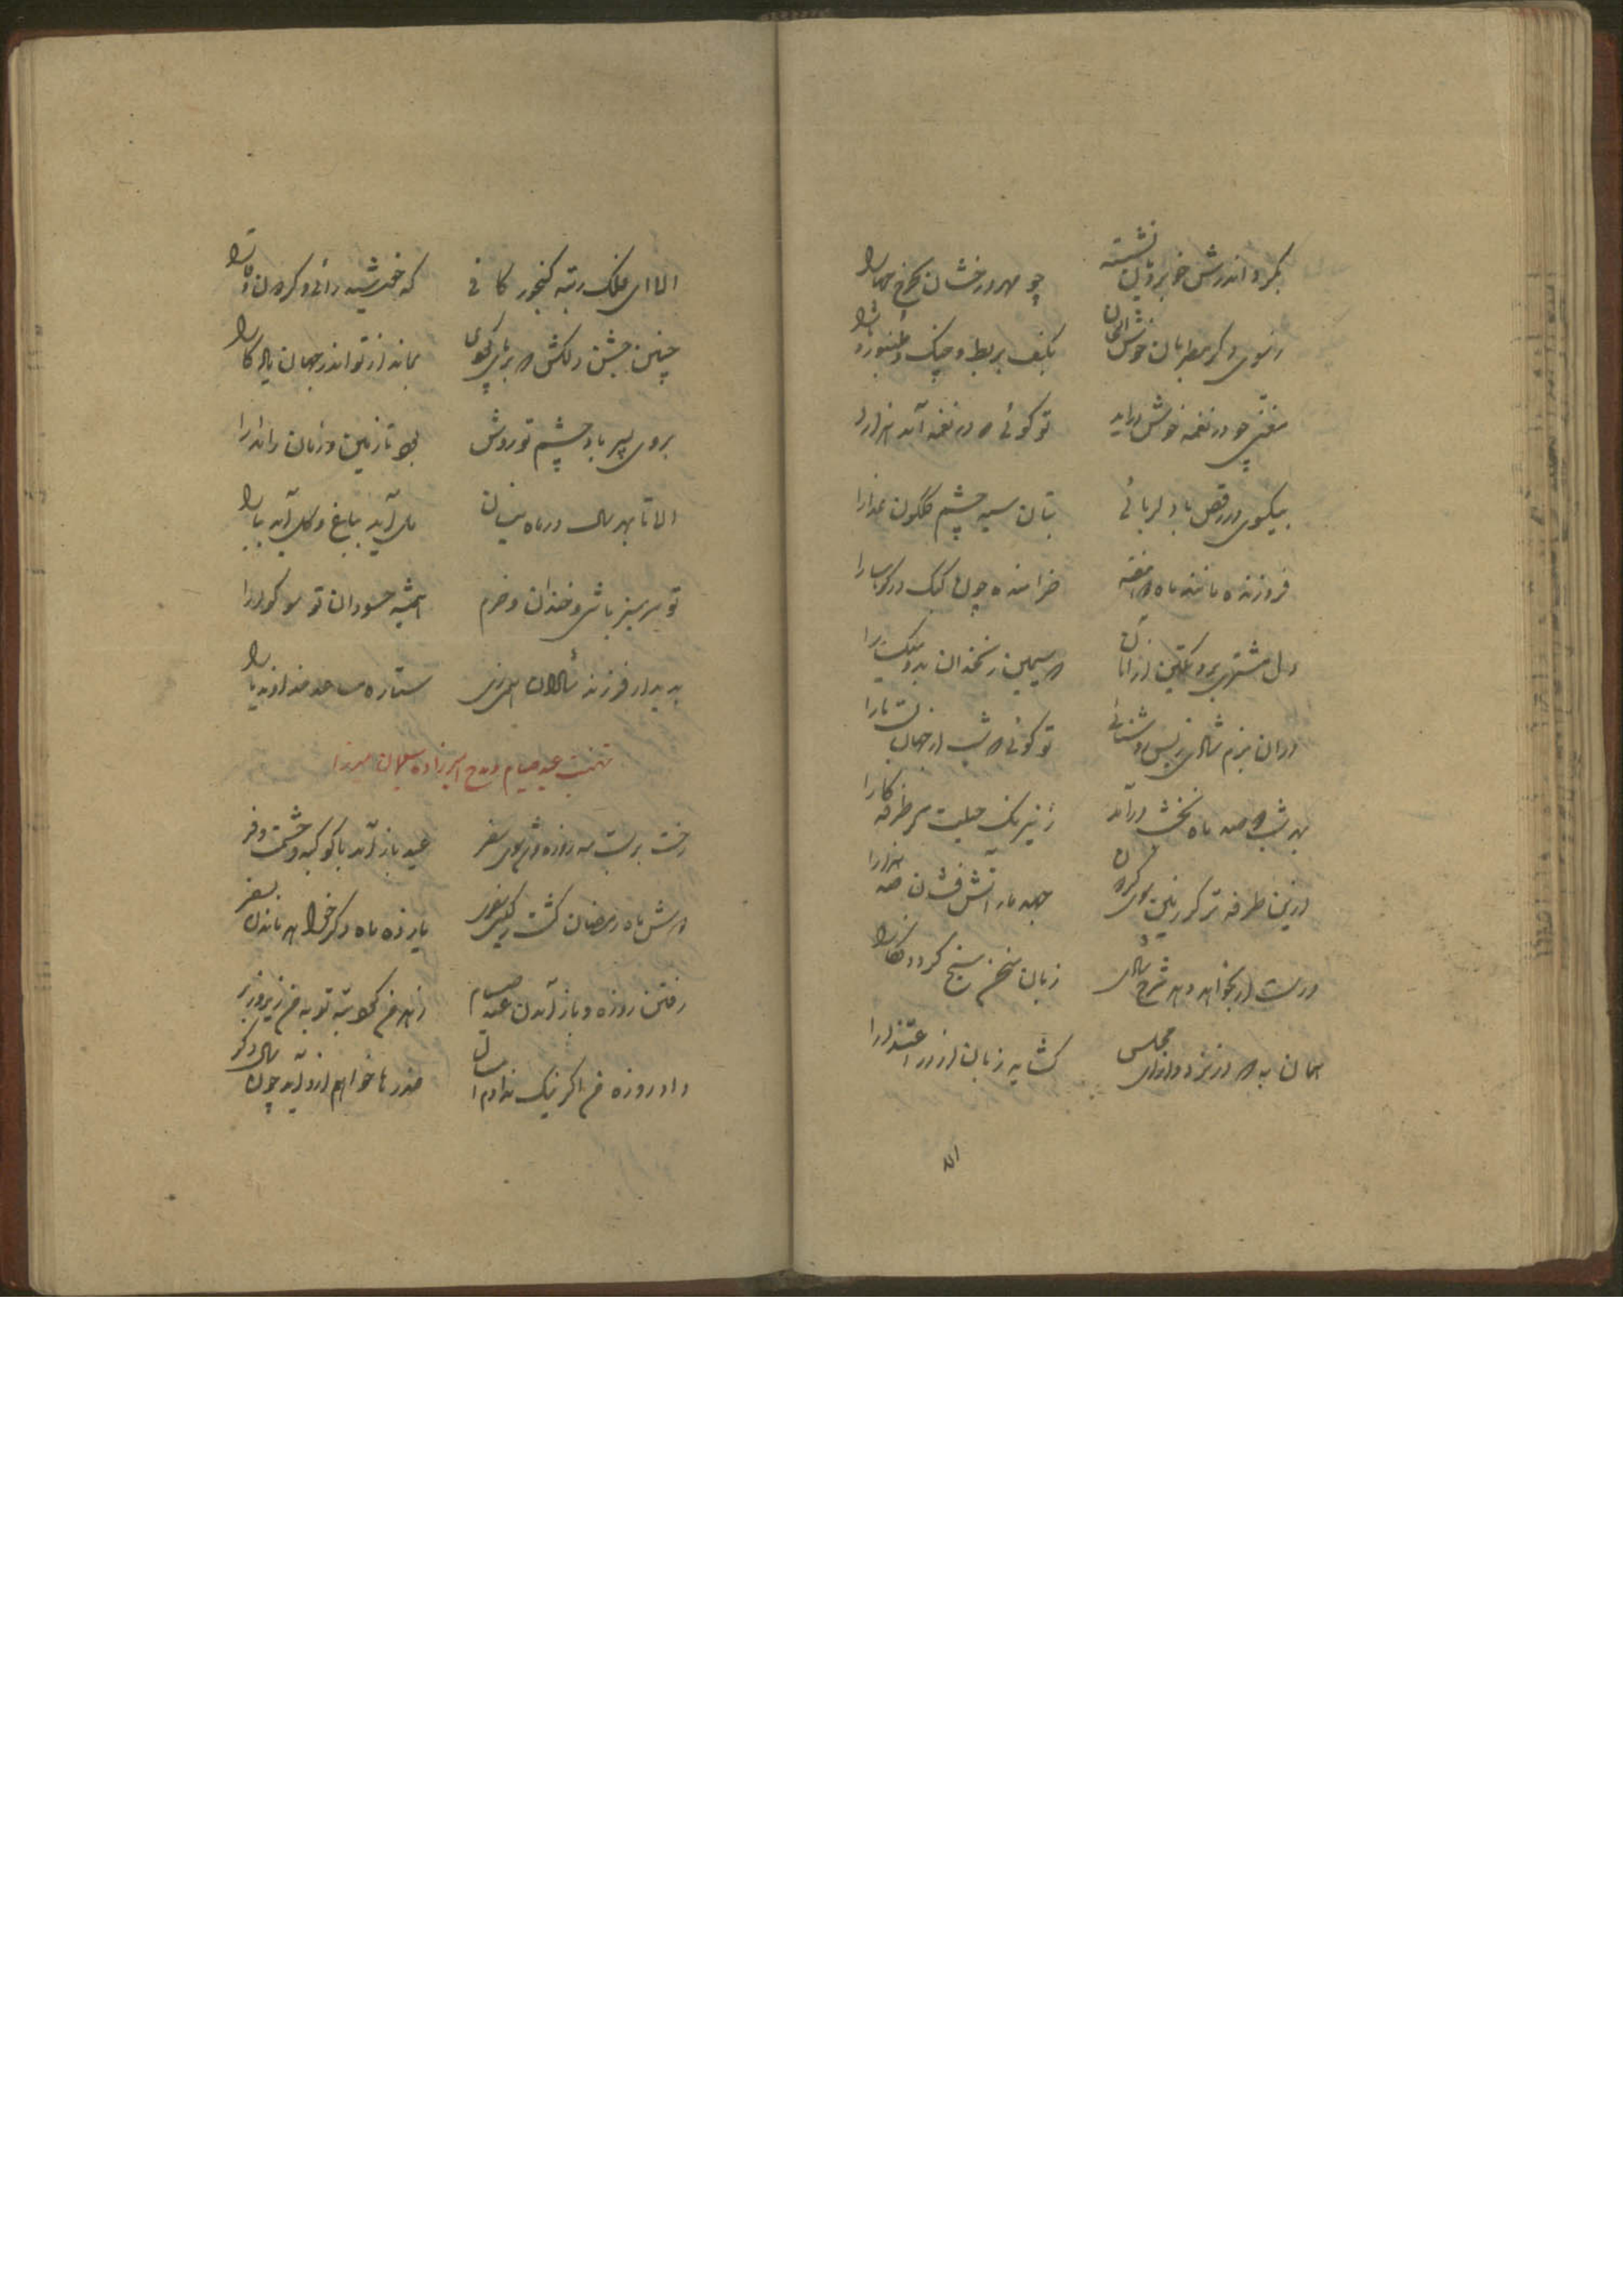 بگرد اندرش خوبرویان نشسته چو مهر درخشان بچرخ
ز سوی دگر مطربان خوش الحان بکف بربط و چنگ و طنبور و
مغنی چو در نغمه خوش درآید تو گوئی که در نغمه آمد هزارا
بیکسوی در رقص با دلربائی بتان سیه چشم گلگون عذارا
فروزنده مانند ماه دو هفته خرامنده چون کبک در کوهسارا
دل مشتری برد که سیمین زنخدان
در آن بزم شادی ز بس روشنائی تو گوئی که شب از جهان
بهر شب که صد ماه نخشب درآمد ز نیرنگ حیلت گر طرفه کارا
وزین طرفه تر کز زمین سوی گردون جهد مار آتش فشان صد هزارا
درست ار بخواهد دهد شرح شادی زبان سخن سنج گردد فکارا
همان به که در نزد دارای مجلس گشاید زبان از در اعتذارا
الا
الا ای فلک رتبه گنجور کافی که خورشید رائی و گردون وقارا
چنین جشن دلکش که برپای کردی بماند از تو اندر جهان یادگارا
بروی پسر باد چشم تو روشن بود تا زمین و زمان را مدارا
الا تا بهر سال در ماه نیسان مل آید بباغ و گل آید ببارا
تو سرسبز باشی و خندان و خرم همیشه حسودان تو سوگوارا
بدیدار فرزند شادان ستاره مساعد خداوند یارا
تهنیت عید صیام و مدح امیرزاده سلیمان میرزا
رخت بربست مه روزه و شد سوی سفر عید باز آمد با کوکبه و حشمت و فر
دوش ماه رمضان گشت یازده ماه دگر خواهد ماندن بسفر
رفتن روزه و باز آمدن عید صیام زهد من کاسته توبه من زیر و زبر
داد روزه من اگر نیک ندادم امسال عذرها خواهم ازو آید چون سال دگر